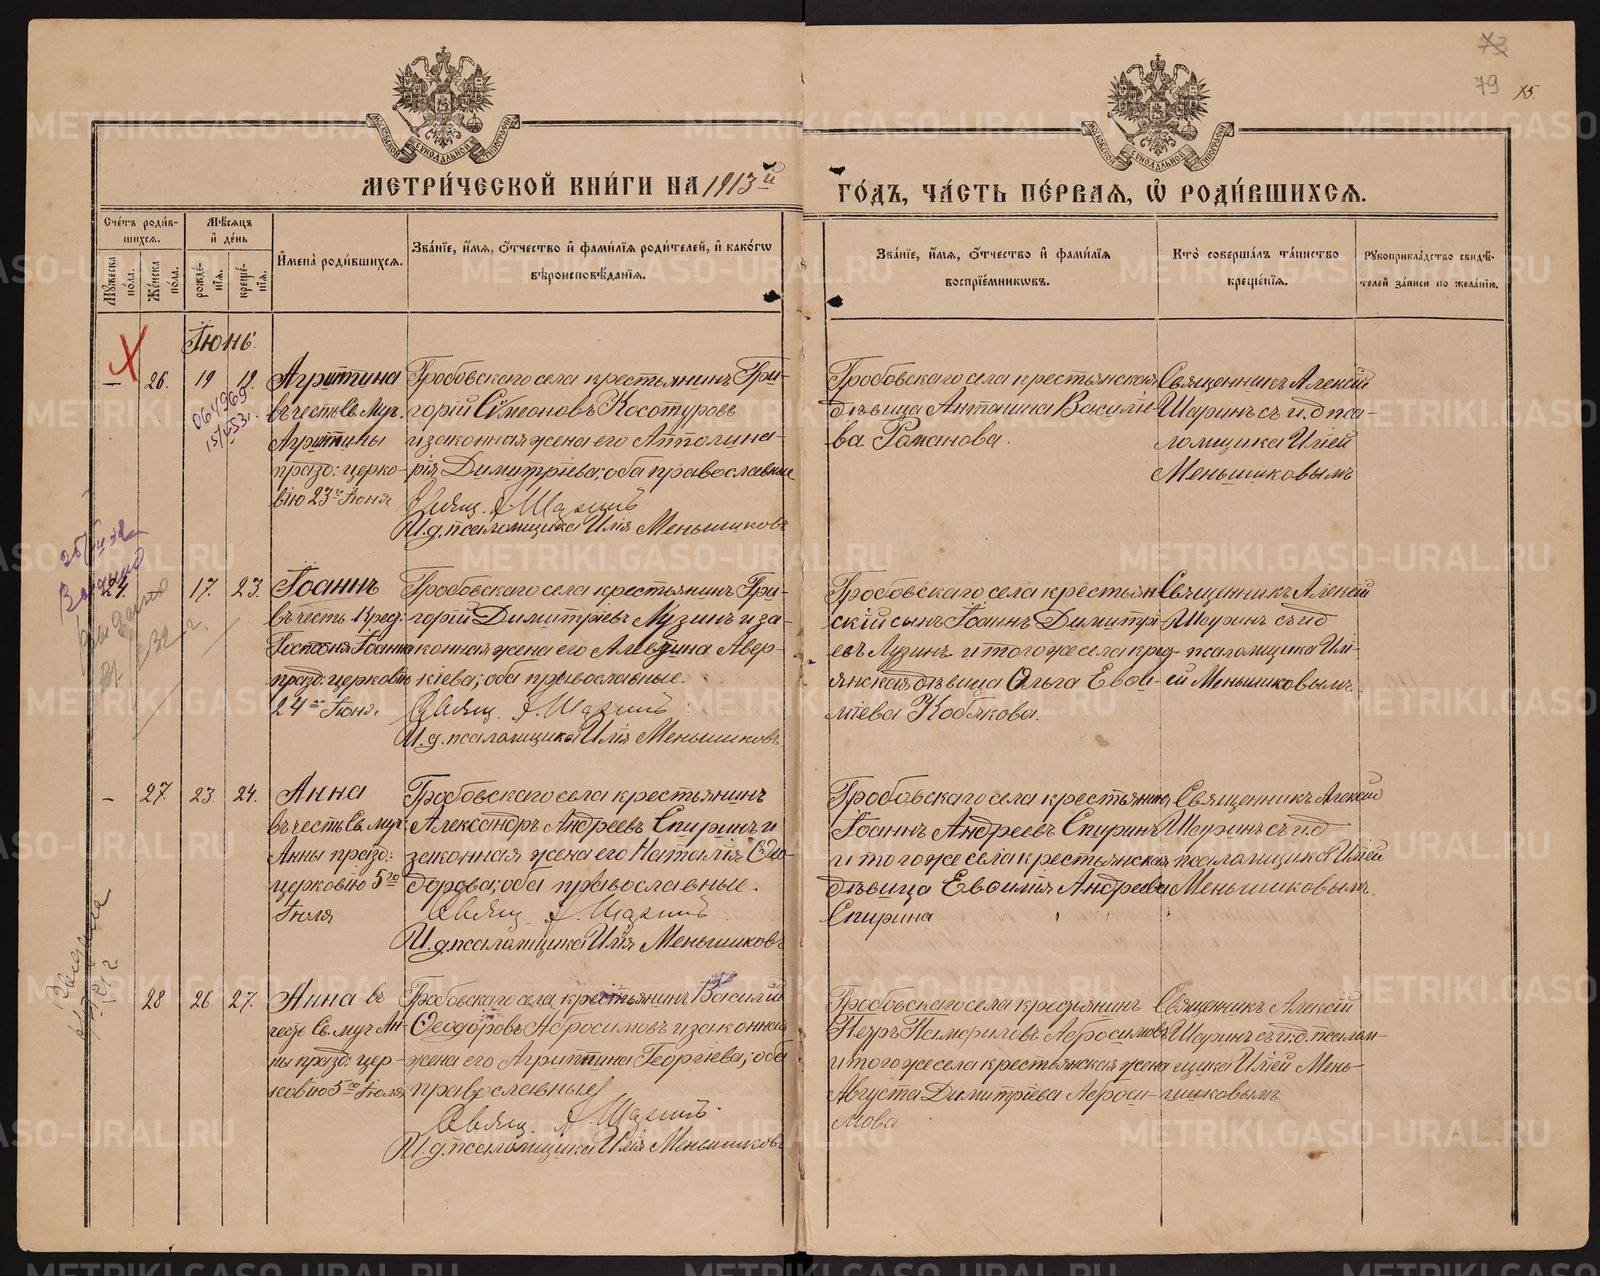 73
79
МОСКОВСКОЙ СѴНОДАЛЬНОЙ ТИПОГРАФІИ
МОСКОВСКОЙ СѴНОДАЛЬНОЙ ТИПОГРАФІИ
МЕТРИ́ЧЕСКОЙ КНИ́ГИ НА 1913й
ГО́ДЪ, ЧА́СТЬ ПЕ́РВАЯ, Ѽ РОДИ́ВШИХСЯ.
Сче́тъ роди́вшихся.
Му́жеска по́ла.
Же́нска по́ла.
Мѣ́сяцъ и҆ де́нь
рожде́нія.
креще́нія.
И҆мена̀ роди́вшихся.
Зва́нїе, и҆́мя, ѻ҆́тчество и҆ фами́лїя роди́телей, и҆ како́гѡ вѣроисповѣ́данїя.
Зва́нїе, и҆́мя, ѻ҆́тчество и҆ фами́лїя воспрїе́мникѡвъ.
Кто̀ соверша́лъ та́инство креще́нїя.
Рукоприкла́дство свидѣ́телей за́писи по жела́нїю.
Іюнь.
— 26. 19 19.
Агриппина
въ честь Св. Муч.
Агриппины
празд: церко-
вію 23го Іюня
Гробовскаго села крестьянинъ Гри-
горій Сѵмеоновъ Косотуровъ
и законная жена его Апполина-
рія Димитріева; оба православные
Свящ. А. Шаринъ
И. д. псаломщика Илія Меньшиковъ
Гробовскаго села крестьянская
дѣвица Антонина Василіе-
ва Романова.
Священникъ Алексій
Шаринъ съ и. д. пса-
ломщика Иліей
Меньшиковымъ
24. 17. 23.
Іоаннъ
въ честь Кред.
Господня Іоанна
празд: церковію
24го Іюня.
Гробовскаго села крестьянинъ Гри-
горій Димитріевъ Лузинъ и за-
конная жена его Алевтина Авер-
кіева; оба православные.
Свящ. А. Шаринъ
И. д. псаломщика Илія Меньшиковъ
Гробовскаго села крестьян-
скій сынъ Іоаннъ Димитрі-
евъ Лузинъ и того же села крес-
янская дѣвица Ольга Евфи-
міева Кобякова.
Священникъ Алексій
Шаринъ съ и. д
псаломщика Илі-
ей Меньшиковымъ
— 27. 23 24.
Анна
въ честь Св. муч.
Анны празд:
церковію 5го
Іюля
Гробовскаго села крестьянинъ
Александръ Андреевъ Спиринъ и
законная жена его Наталія Ѳео-
дорова; оба православные.
Свящ. А. Шаринъ
И. д. псаломщика Илія Меньшиковъ
Гробовскаго села крестьянинъ
Іоаннъ Андреевъ Спиринъ
и того же села крестьянская
дѣвица Евфимія Андреева
Спирина
Священникъ Алексій
Шаринъ съ и. д
псаломщика Иліей
Меньшиковымъ.
28 26 27.
Анна въ
честь Св. муч. Ан-
ны празд: цер-
ковію 5го Іюля
Гробовскаго села крестьянинъ Василій
Ѳеодоровъ Абросимовъ и законная
жена его Агриппина Георгіева; оба
православные
Свящ. А. Шаринъ.
И. д. псаломщика Илія Меньшиковъ
Гробовскаго села крестьянинъ
Петръ Памфиловъ Абросимовъ
и того же села крестьянская жена
Августа Димитріева Аброси-
мова
Священникъ Алексій
Шаринъ съ и. д. псалом-
щика Иліей Мень-
шиковымъ
METRIKI.GASO-URAL.RU